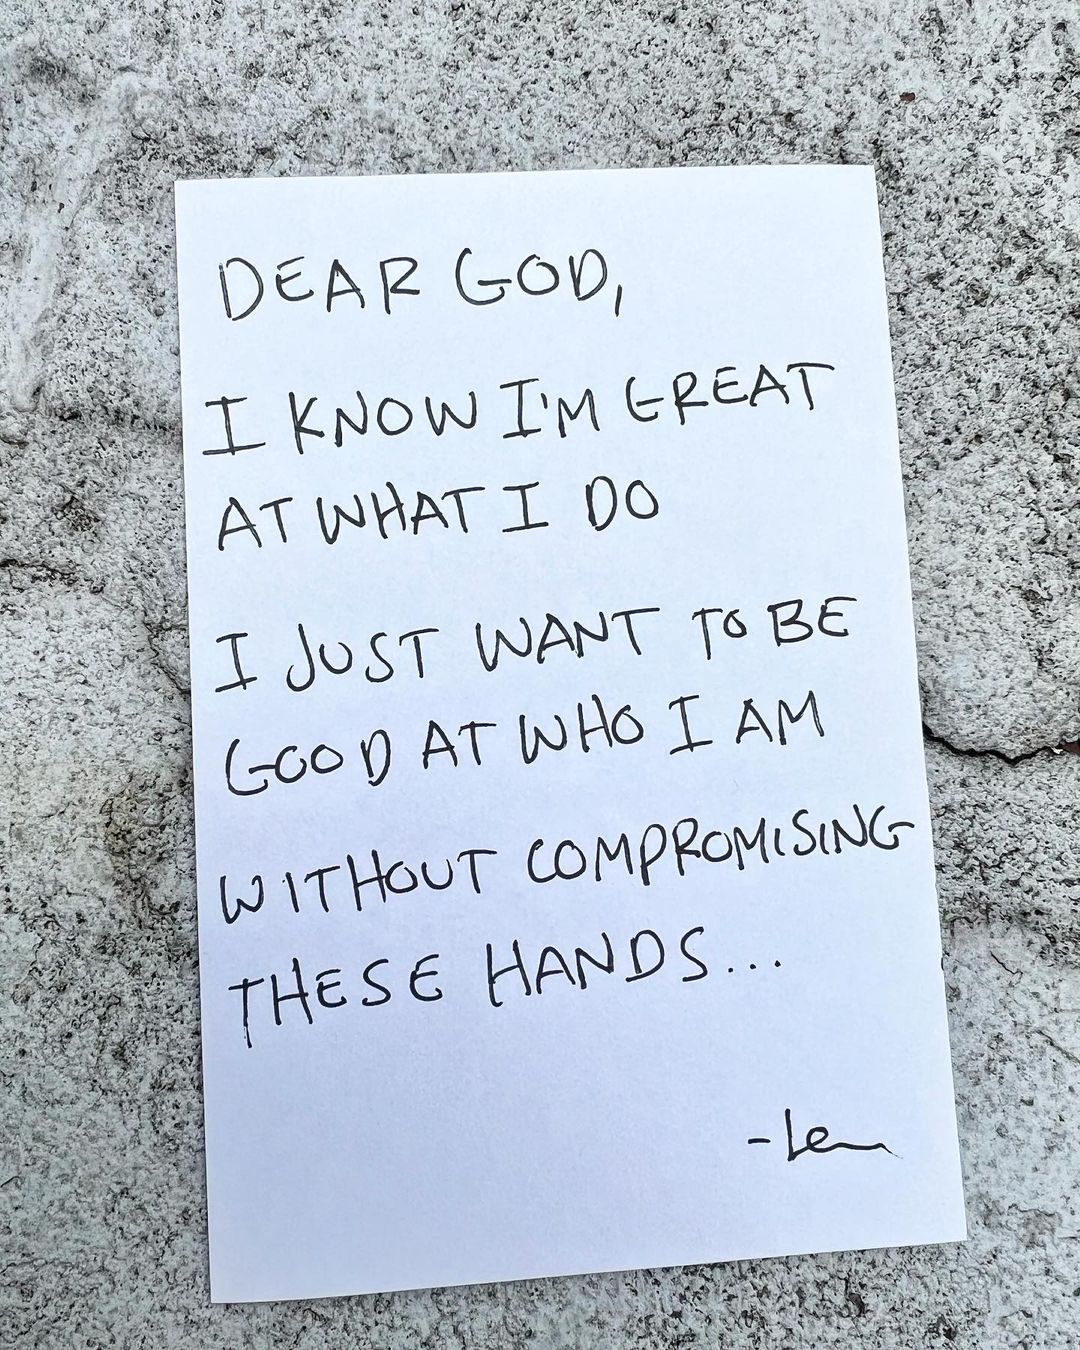 DEAR GOD,
I KNOW I'M GREAT
AT WHAT I DO
I JUST WANT TO BE
GOOD AT WHO I AM
WITHOUT COMPROMISING
THESE HANDS...